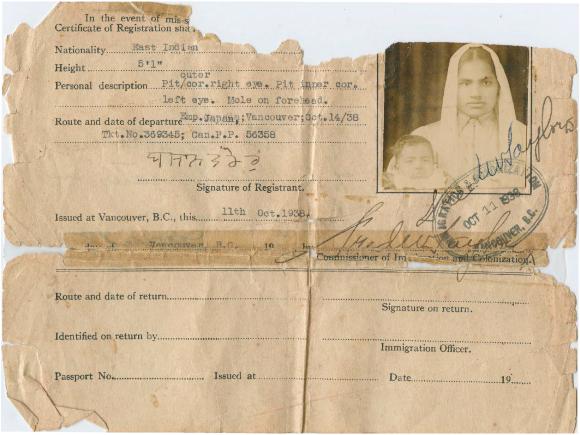 In the event of mis-s
Certificate of Registration shall
Nationality East Indian
Height 5'1"
outer
Personal description Pit/cor.right eye. Pit inner cor.
left eye. Mole on forehead.
Route and date of departure Emp.Japan; Vancouver; Oct.14/38
Tkt.No.369345; Can.P.P. 56358
Signature of Registrant.
Issued at Vancouver, B.C., this 11th Oct.1938.
Vancouver, B.C. 19
Commissioner of Immigration and Colonization.
OCT 11 1938
VANCOUVER, B.C.
Route and date of return
Signature on return.
Identified on return by
Immigration Officer.
Passport No. Issued at Date 19